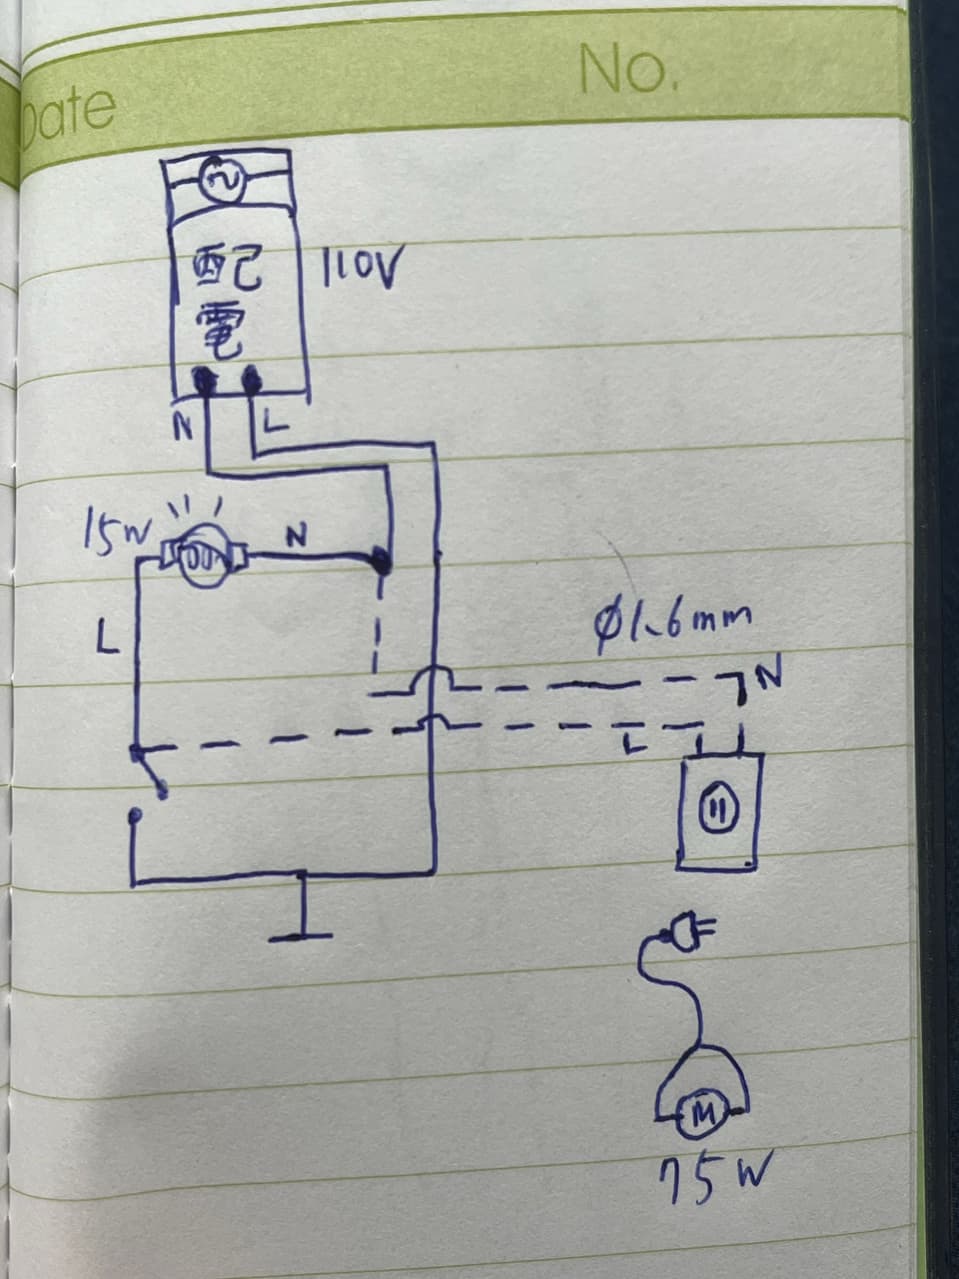 Date
No.
配
電
110V
N
L
15W
N
L
Ø1.6mm
N
L
M
75W